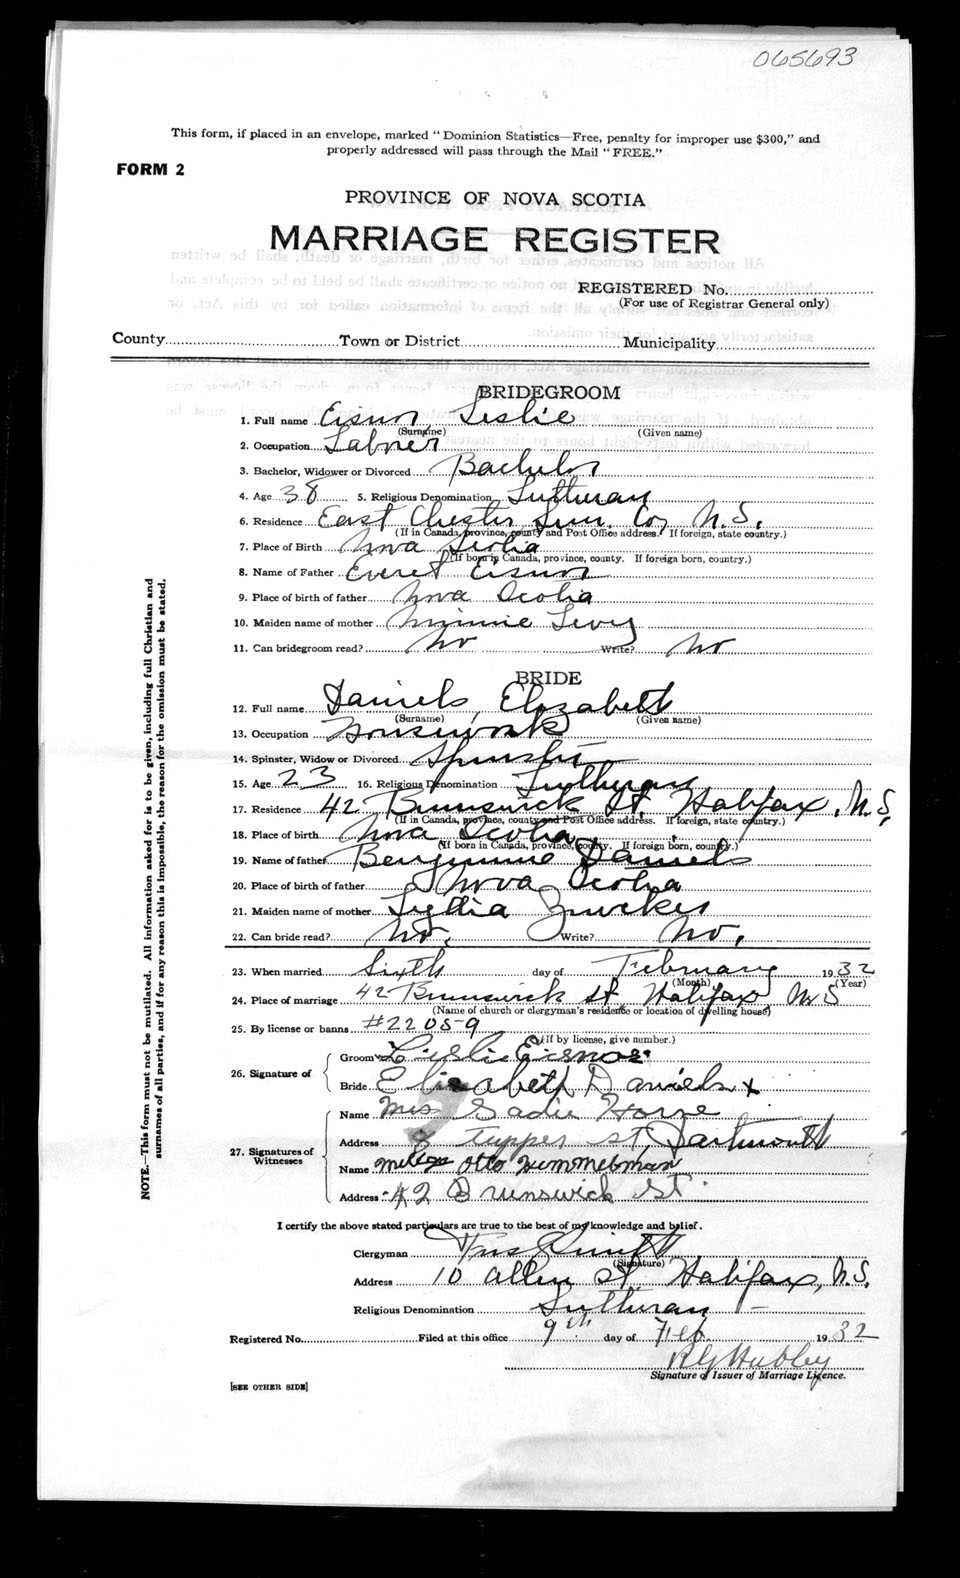 065693
This form, if placed in an envelope, marked " Dominion Statistics—Free, penalty for improper use $300," and
properly addressed will pass through the Mail " FREE."
FORM 2
PROVINCE OF NOVA SCOTIA
MARRIAGE REGISTER
REGISTERED No.
(For use of Registrar General only)
County Town or District Municipality
BRIDEGROOM
1. Full name Eisnor, Leslie
(Surname) (Given name)
2. Occupation Laborer
3. Bachelor, Widower or Divorced Bachelor
4. Age 38 5. Religious Denomination Lutheran
6. Residence East Chester Lun. Co, N.S.
(If in Canada, province, county and Post Office address. If foreign, state country.)
7. Place of Birth Nova Scotia
(If born in Canada, province, county. If foreign born, country.)
8. Name of Father Everet Eisnor
9. Place of birth of father Nova Scotia
10. Maiden name of mother Minnie Levy
11. Can bridegroom read? No Write? No
BRIDE
12. Full name Daniels, Elizabeth
(Surname) (Given name)
13. Occupation Housework
14. Spinster, Widow or Divorced Spinster
15. Age 23 16. Religious Denomination Lutheran
17. Residence 42 Brunswick St. Halifax, N.S,
(If in Canada, province, county and Post Office address. If foreign, state country.)
18. Place of birth Nova Scotia
(If born in Canada, province, county. If foreign born, country.)
19. Name of father Benjimine Daniels
20. Place of birth of father Nova Scotia
21. Maiden name of mother Lydia Zwicker
22. Can bride read? No. Write? No.
23. When married Sixth day of February 1932
(Month) (Year)
24. Place of marriage 42 Brunswick St Halifax N.S
(Name of church or clergyman's residence or location of dwelling house)
25. By license or banns #22059
(If by license, give number.)
26. Signature of
Groom Leslie Eisnor
Bride Elizabeth Daniels x
27. Signatures of Witnesses
Name Mrs Sadie
Address 8 Tupper St Dartmouth
Name Otto Zimmelman
Address 42 Brunswick St.
I certify the above stated particulars are true to the best of my knowledge and belief.
Clergyman
(Signature)
Address 10 Allen St. Halifax, N.S.
Religious Denomination Lutheran
Registered No. Filed at this office 9th day of Feb 1932
R G Hubley
Signature of Issuer of Marriage Licence.
[SEE OTHER SIDE]
NOTE.—This form must not be mutilated. All information asked for is to be given, including full Christian and
surnames of all parties, and if for any reason this is impossible, the reason for the omission must be stated.